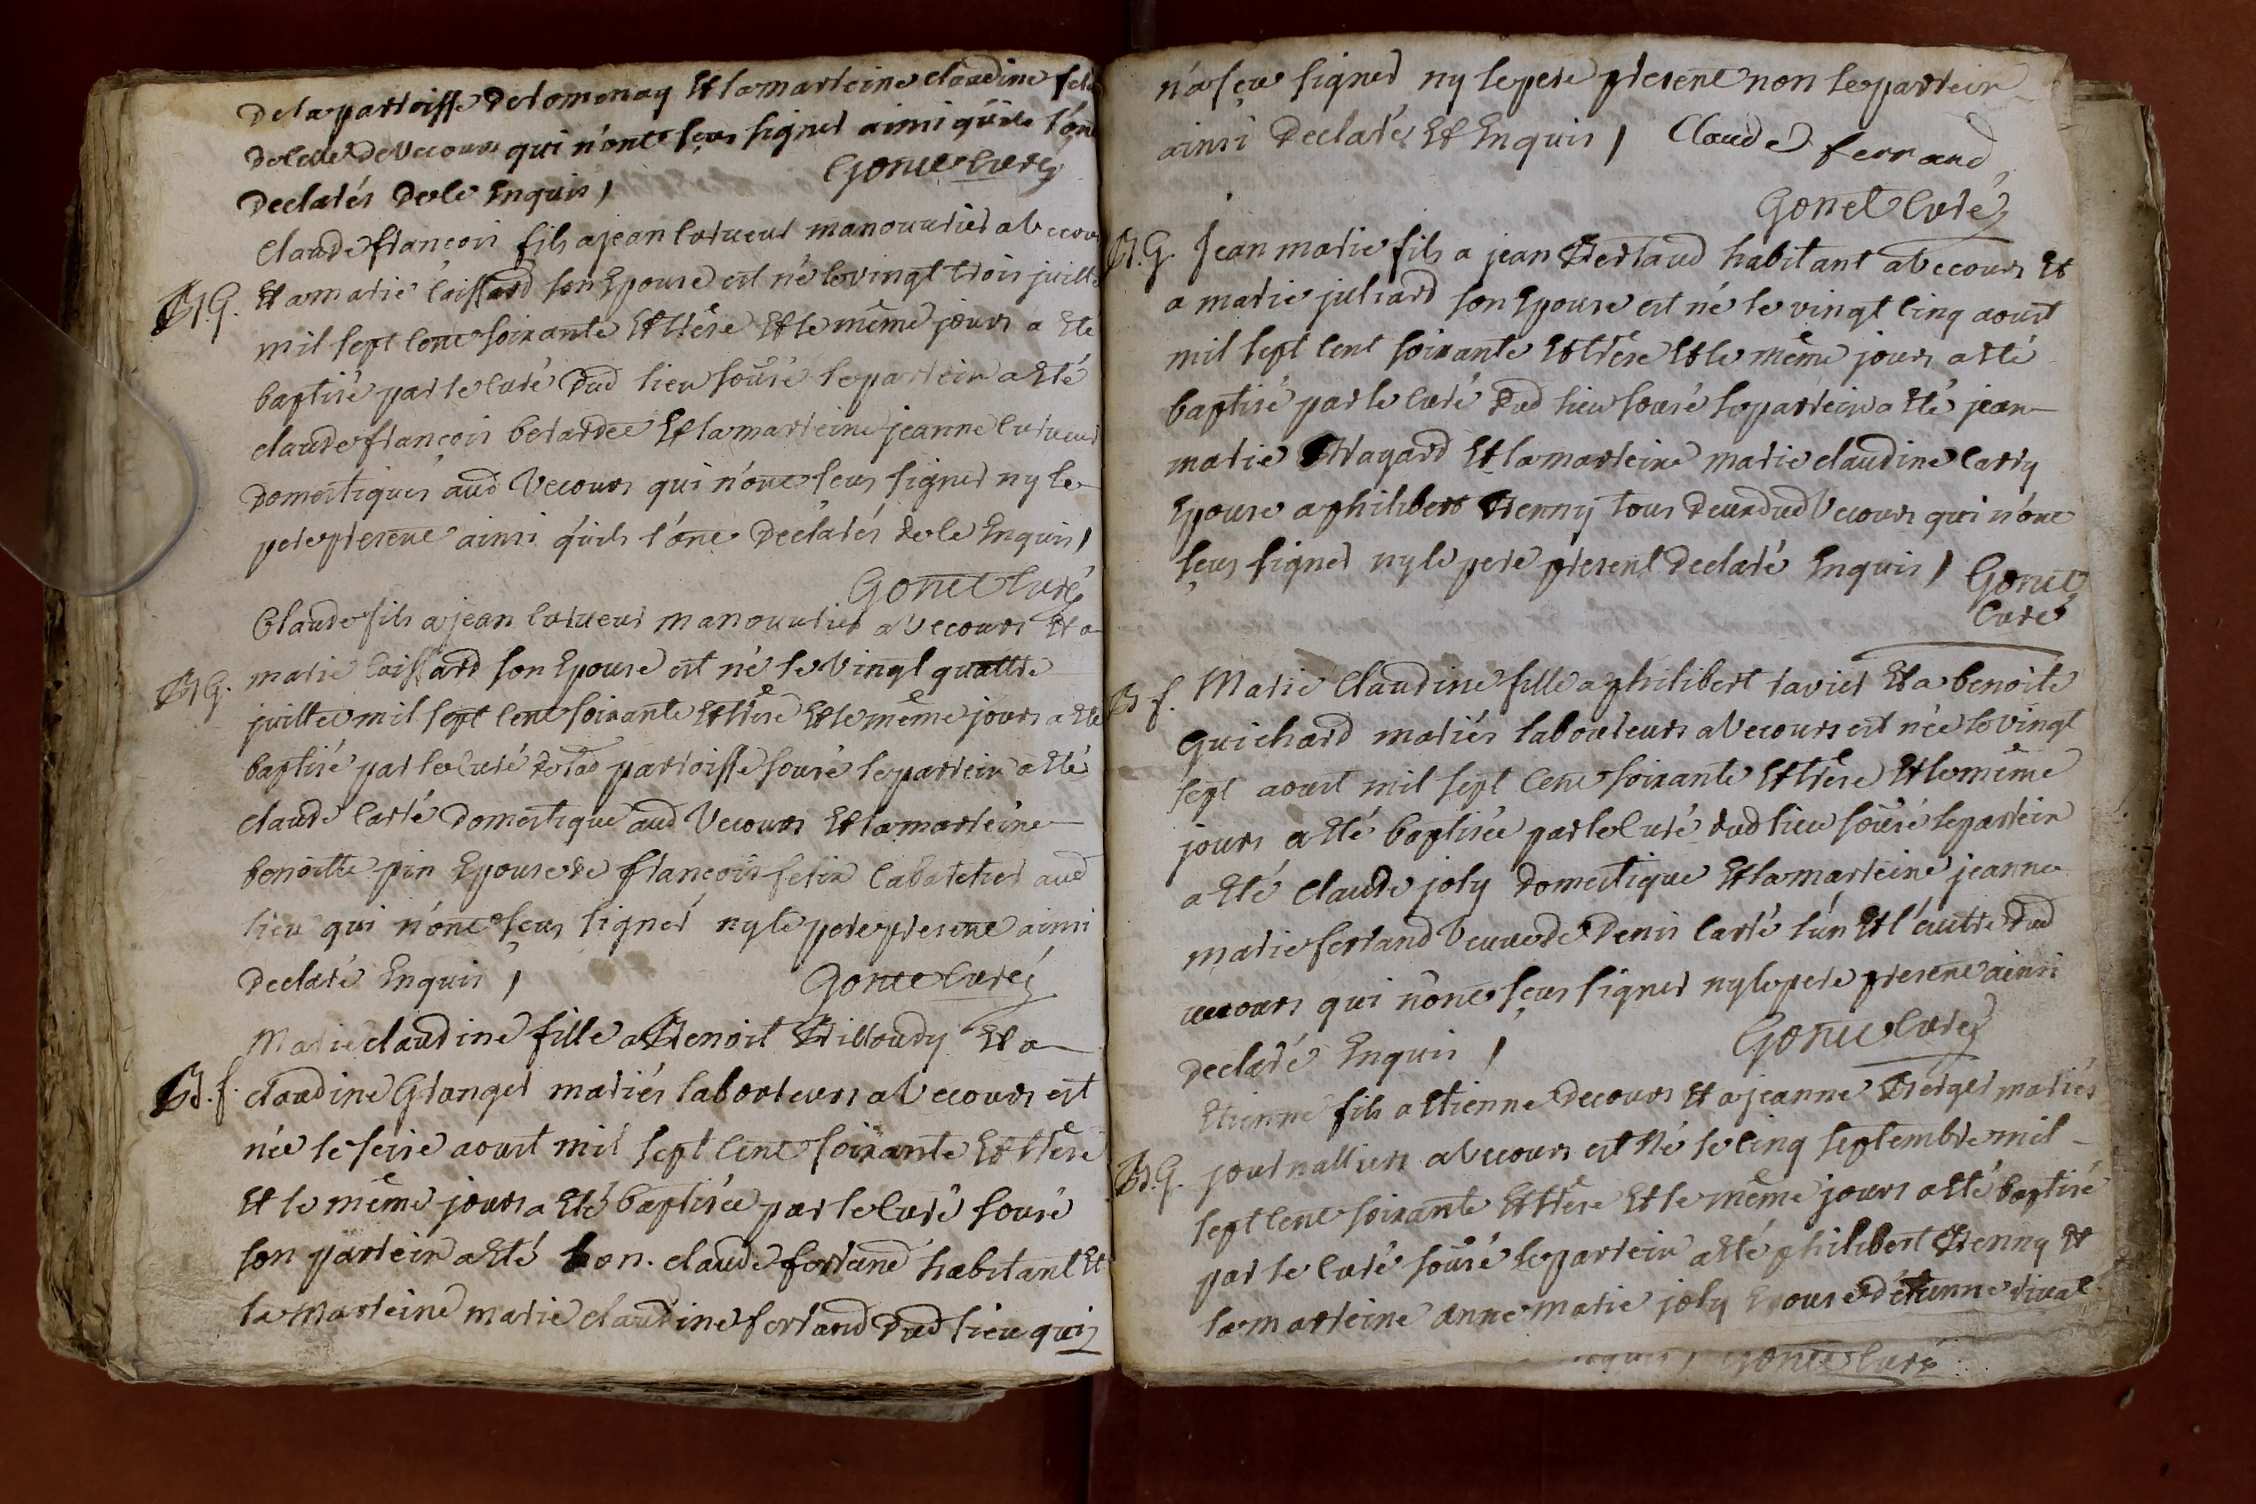 de la parroisse de romenay Et la marreine claudine
de vecours qui nont sçeus signer ainsi quils l'ont
declarés de le Enquis / Gonet Curé
Claude françois fils a jean curveur manouvrier a Vecour
B. G. Et a marie caissard son Epouse est né le vingt trois juillet
mil sept cent soixante Et trése Et le même jours a Eté
baptisé par le curé dud lieu sousé le parrein a Eté
claude françois berardet Et la marreine jeanne curveur
domestiques aud Vecours qui nont sçeus signer ny le
pere present ainsi quils l'ont declarés de le Enquis /
Gonet Curé
Claude fils a jean curveur manouvrier a Vecours Et a
B. G. marie caissard son Epouse est né le Vingt quattre
juillet mil sept cent soixante Et trése Et le même jours a Eté
baptisé par le Curé de lad parroisse sousé le parrein a Eté
claude carré domestique aud Vecours Et la marreine
benoitte pin Epouse de françois felix cabaretier aud
lieu qui n'ont sçeus signer ny le pere present ainsi
declaré Enquis / Gonet Curé
Marie claudine fille a Benoit Billoudy Et a
B. f. claudine Granger mariés laboureurs a Vecours est
née le seise aoust mil sept cent soixante Et trése
Et le même jours a Eté baptisée par le Curé sousé
son parrein a Eté hon. claude ferrand habitant Et
la Marreine marie claudine ferrand dud lieu qui
n'a sçeu signer ny le pere present non le parrein
ainsi declaré Et Enquis / Claude ferrand
Gonet Curé
B. G. Jean marie fils a jean Bertaud habitant a Vecours Et
a marie juliard son Epouse est né le vingt cinq aoust
mil sept cent soixante Et trése Et le même jours a Eté
baptisé par le Curé dud lieu sousé le parrein a Eté jean
marie Bragard Et la marreine marie claudine carry
Epouse a philibert Benny tous deux dud Vecours qui n'ont
sçeus signer ny le pere present declaré Enquis / Gonet
Curé
B f. Marie Claudine fille a philibert ravier Et a benoite
Guichard mariés laboureurs a Vecours est née le vingt
sept aoust mil sept cent soixante Et trése Et le même
jours a Eté baptisée par le Curé dud lieu sousé le parrein
a Eté claude joly domestique Et la marreine jeanne
marie ferrand Veuve de Denis Carré l'un Et l'autre dud
vecours qui nont sçeus signer ny le pere present ainsi
declaré Enquis / Gonet Curé
Etienne fils a Etienne Decours Et a jeanne Berger mariés
B. G. journalliers a Vecours est Né le cinq septembre mil
sept cent soixante Et trése Et le même jours a Eté baptisé
par le Curé sousé le parrein a Eté philibert Benny Et
la marreine anne marie joly Epouse d'étienne rival
Enquis / Gonet Curé